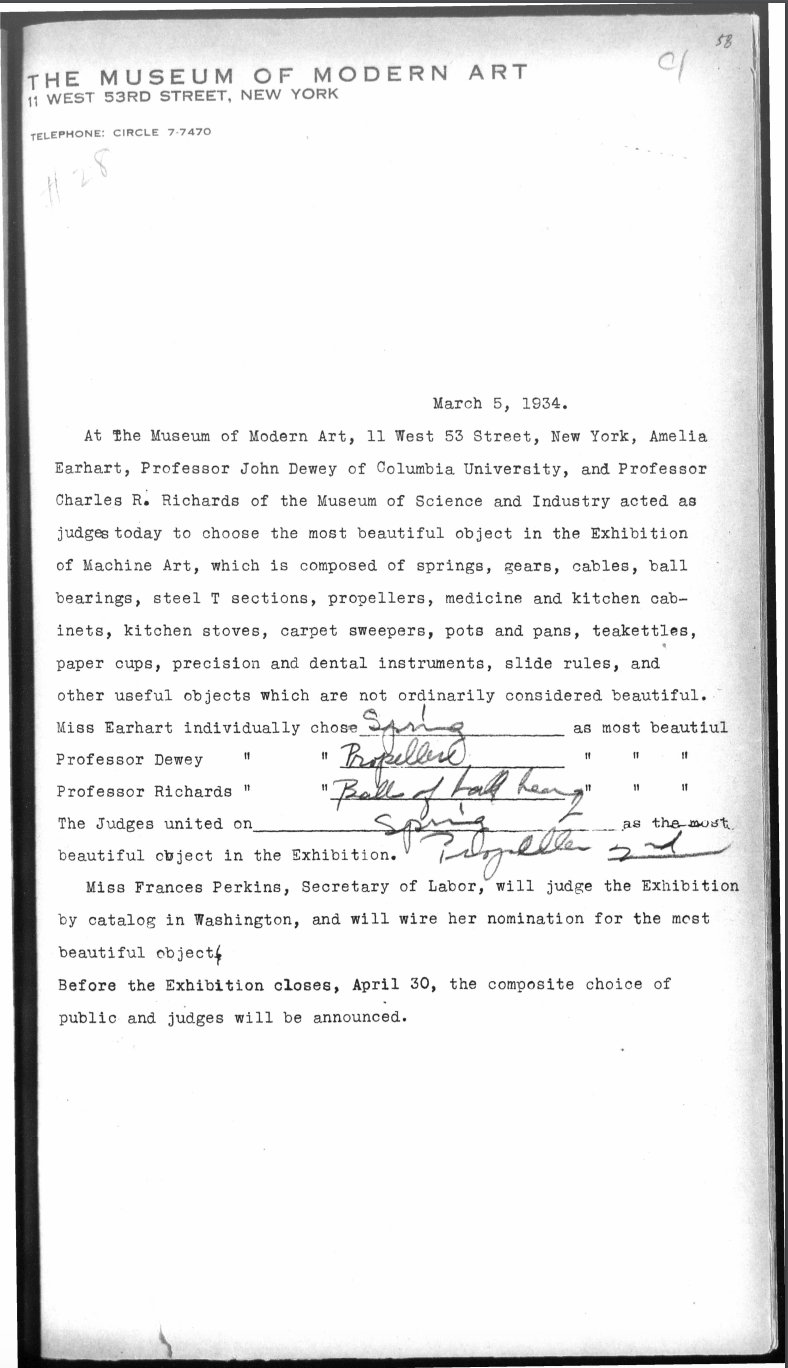 58
C/
THE MUSEUM OF MODERN ART
11 WEST 53RD STREET, NEW YORK
TELEPHONE: CIRCLE 7-7470
#28
March 5, 1934.
At The Museum of Modern Art, 11 West 53 Street, New York, Amelia
Earhart, Professor John Dewey of Columbia University, and Professor
Charles R. Richards of the Museum of Science and Industry acted as
judges today to choose the most beautiful object in the Exhibition
of Machine Art, which is composed of springs, gears, cables, ball
bearings, steel T sections, propellers, medicine and kitchen cab-
inets, kitchen stoves, carpet sweepers, pots and pans, teakettles,
paper cups, precision and dental instruments, slide rules, and
other useful objects which are not ordinarily considered beautiful.
Miss Earhart individually chose Spring as most beautiul
Professor Dewey " " Propellers " " "
Professor Richards " " Balls of ball " " "
The Judges united on Spring as the most
beautiful object in the Exhibition. Propeller 2nd
Miss Frances Perkins, Secretary of Labor, will judge the Exhibition
by catalog in Washington, and will wire her nomination for the most
beautiful object.
Before the Exhibition closes, April 30, the composite choice of
public and judges will be announced.